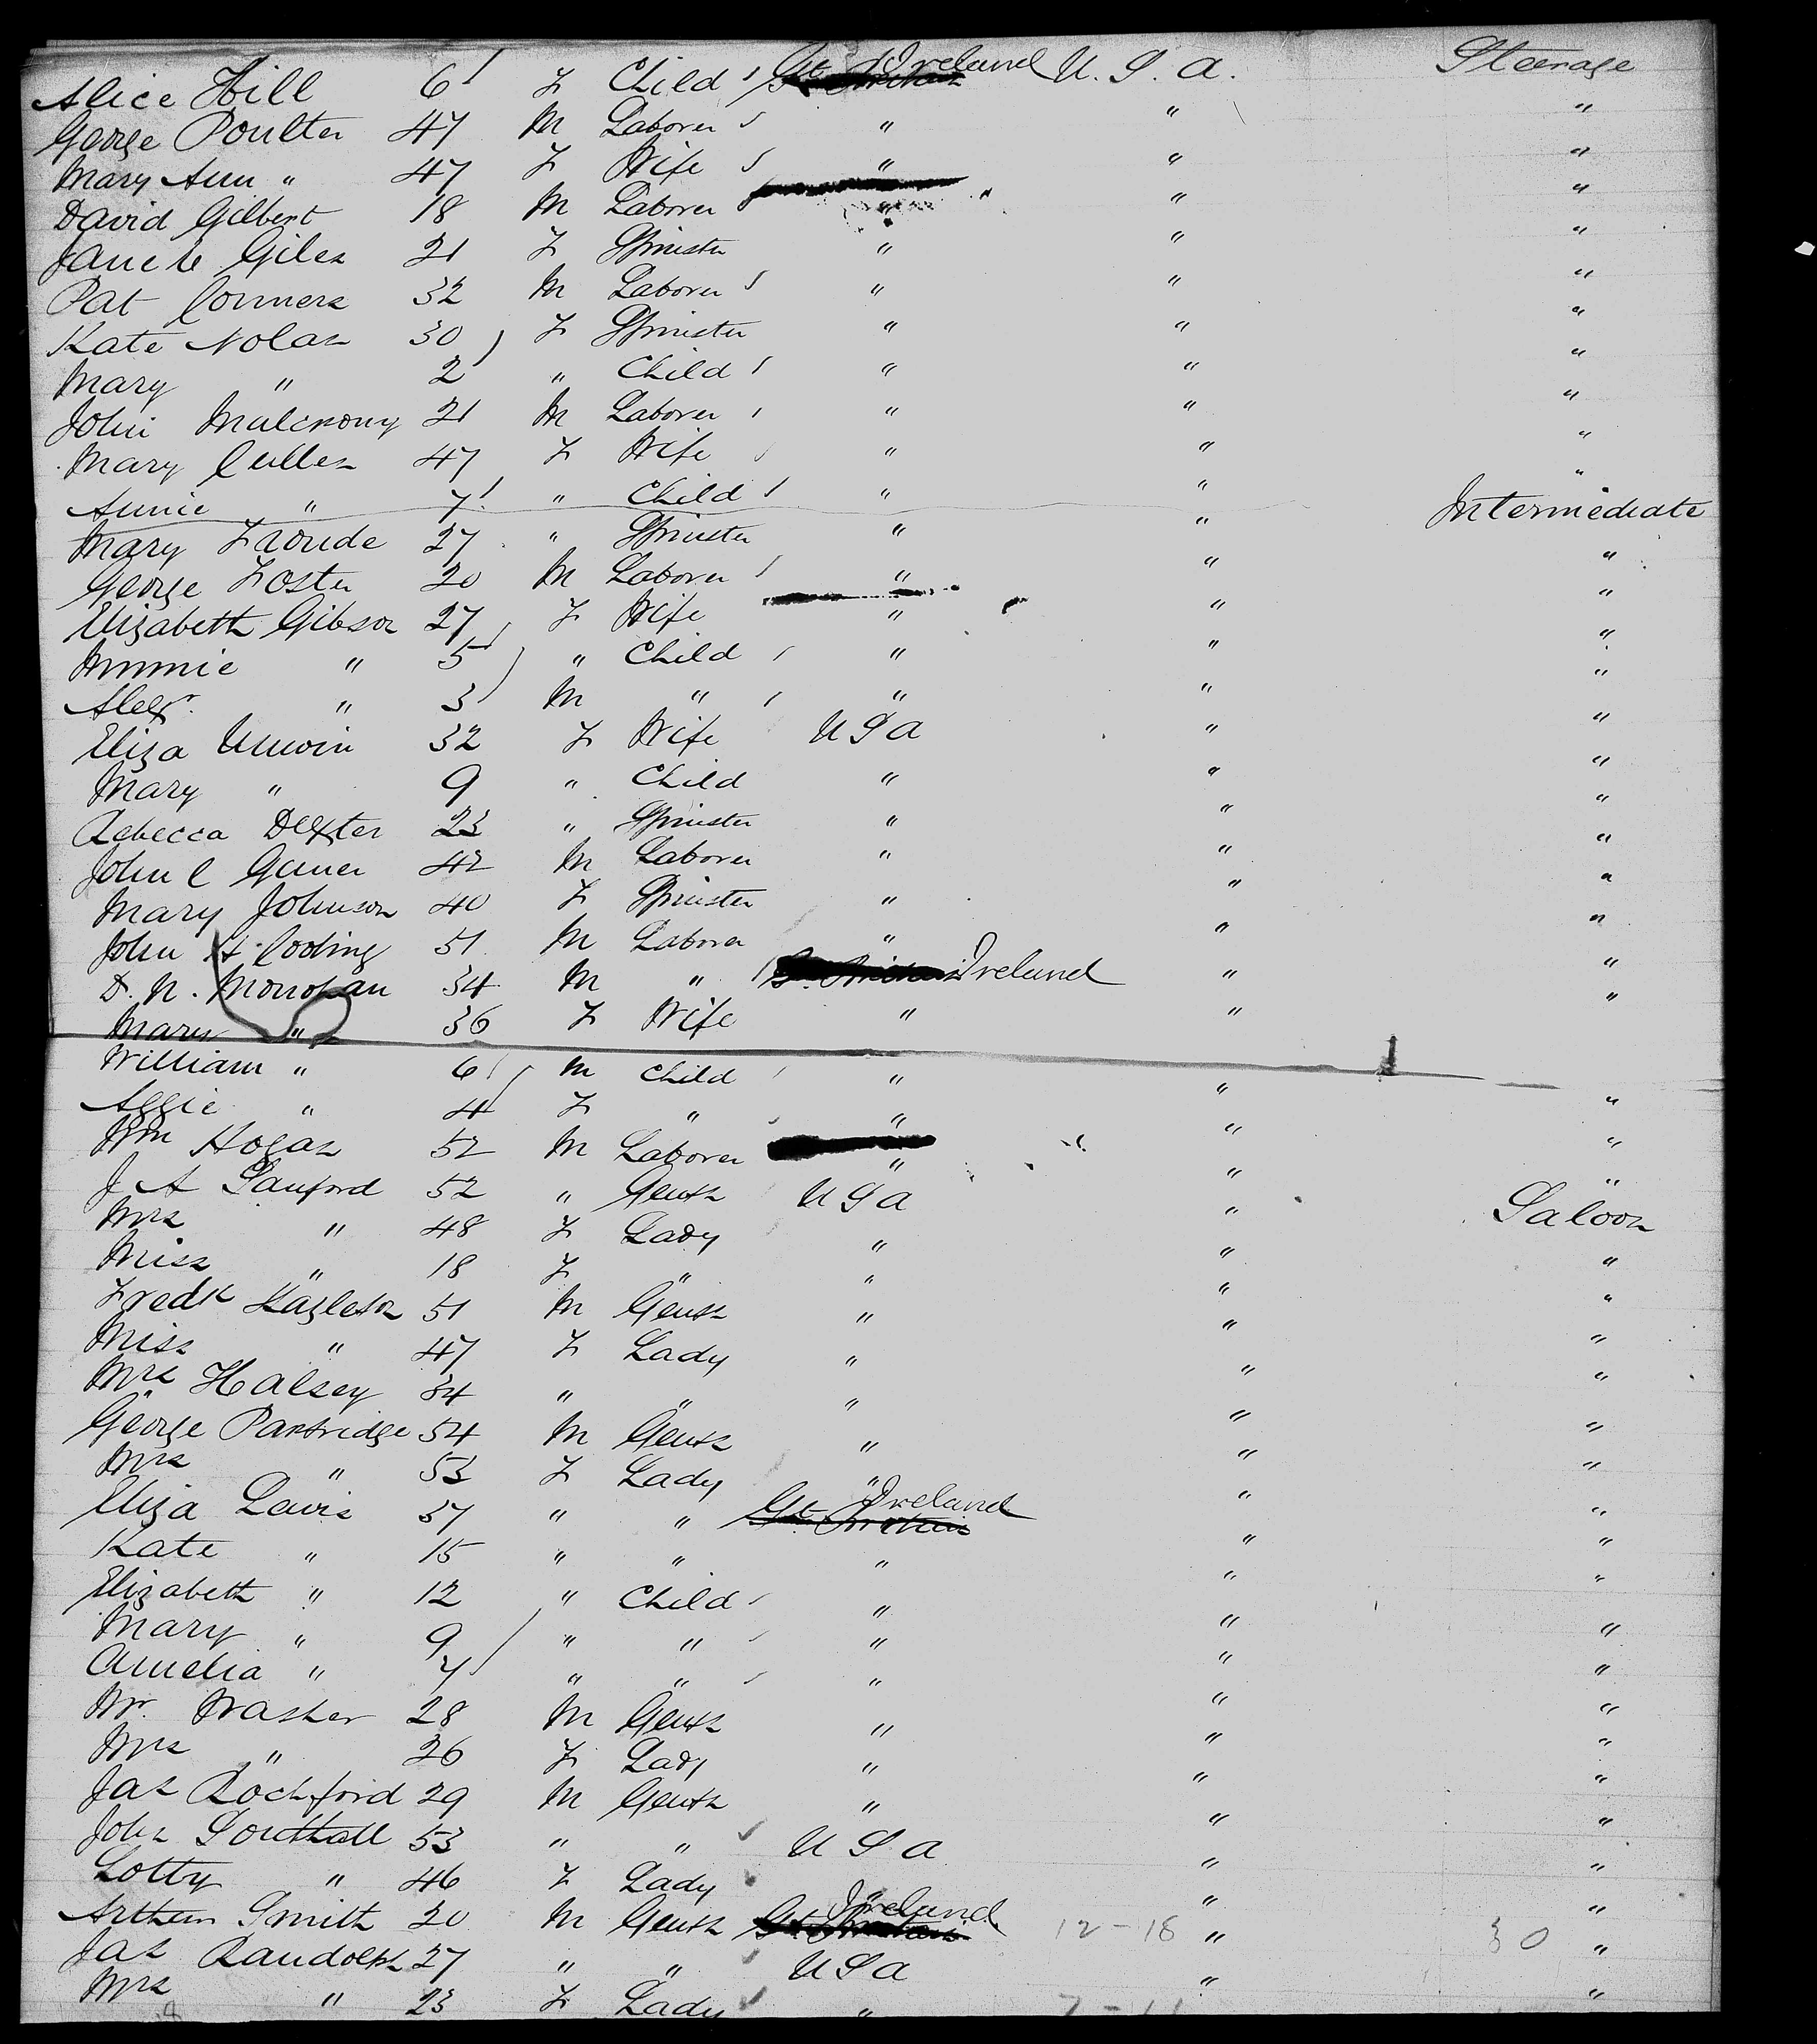 Alice Hill 6 F Child Ireland U.S.A. Steerage
George Poulter 47 M Laborer " " "
Mary Ann " 47 F Wife " " "
David Gilbert 18 M Laborer " " "
Jane Giles 21 F Spinster " " "
Pat Conners 32 M Laborer " " "
Kate Nolan 30 F Spinster " " "
Mary " 2 " Child " " "
John Mulcrony 21 M Laborer " " "
Mary Cullen 47 F Wife " " "
Annie " 7 " Child " " "
Mary Froude 27 " Spinster " " Intermediate
George Foster 20 M Laborer " " "
Elizabeth Gibson 27 F Wife " " "
Minnie " 5 " Child " " "
Alexr. " 3 M " " " "
Eliza Unwin 32 F Wife USA " "
Mary " 9 " Child " " "
Rebecca Dexter 23 " Spinster " " "
John C 42 M Laborer " " "
Mary Johnson 40 F Spinster " " "
John H. Cooling 51 M Laborer " " "
D. N. Monohan 34 M " Ireland " "
Mary " 36 F Wife " " "
William " 6 M Child " " "
Aggie " 4 F " " " "
Wm Hogan 52 M Laborer " " "
J A Sanford 52 " Gent USA " Saloon
Mrs " 48 F Lady " " "
Miss " 18 F " " " "
Fredk Hazleton 51 M Gent " " "
Miss " 47 F Lady " " "
Mrs Halsey 34 " " " " "
George Partridge 54 M Gent " " "
Mrs " 53 F Lady " " "
Eliza Lewis 37 " " Gt Britain Ireland " "
Kate " 15 " " " " "
Elizabeth " 12 " Child " " "
Mary " 9 " " " " "
Amelia " 7 " " " " "
Mr. Prasher 28 M Gent " " "
Mrs " 26 F Lady " " "
Jas Rochford 29 M Gent " " "
John Southall 53 " " USA " "
Lotty " 46 F Lady " " "
Arthur Smith 20 M Gent Ireland 12-18 " 30 "
Jas Randolph 27 " " USA " "
Mrs " 23 F Lady " "